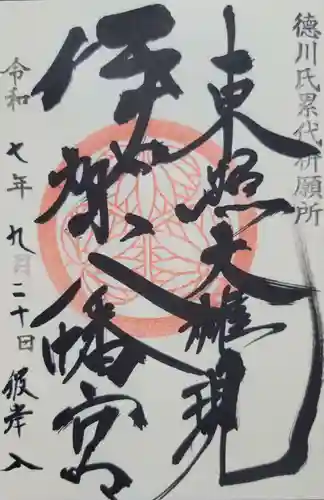 徳川氏累代祈願所
東照大雄現
伊賀八幡宮
令和七年九月二十日 彼岸入